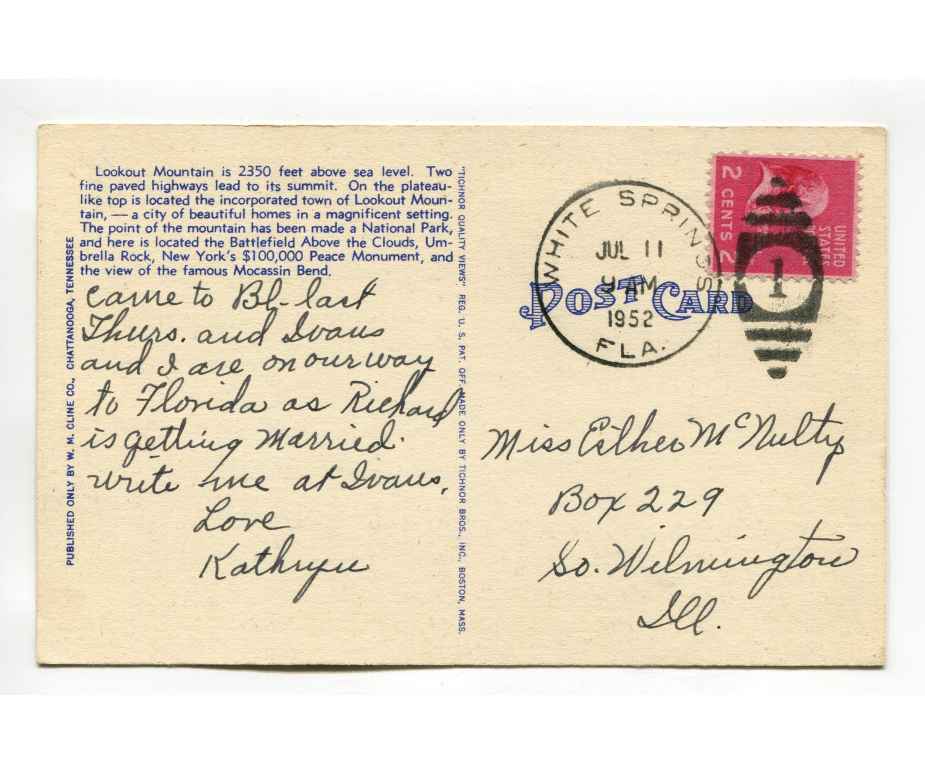 Lookout Mountain is 2350 feet above sea level. Two
fine paved highways lead to its summit. On the plateau-
like top is located the incorporated town of Lookout Moun-
tain, — a city of beautiful homes in a magnificent setting.
The point of the mountain has been made a National Park,
and here is located the Battlefield Above the Clouds, Um-
brella Rock, New York's $100,000 Peace Monument, and
the view of the famous Mocassin Bend.
Came to Bl- last
Thurs. and Ivans
and I are on our way
to Florida as Richard
is getting Married.
write me at Ivans,
Love
Kathryn
PUBLISHED ONLY BY W. M. CLINE CO., CHATTANOOGA, TENNESSEE
"TICHNOR QUALITY VIEWS" REG. U. S. PAT. OFF. MADE ONLY BY TICHNOR BROS., INC., BOSTON, MASS.
WHITE SPRINGS
JUL 11
9 AM
1952
FLA.
1
UNITED
STATES
2 CENTS 2
POST CARD
Miss Esther McNulty
Box 229
So. Wilmington
Ill.